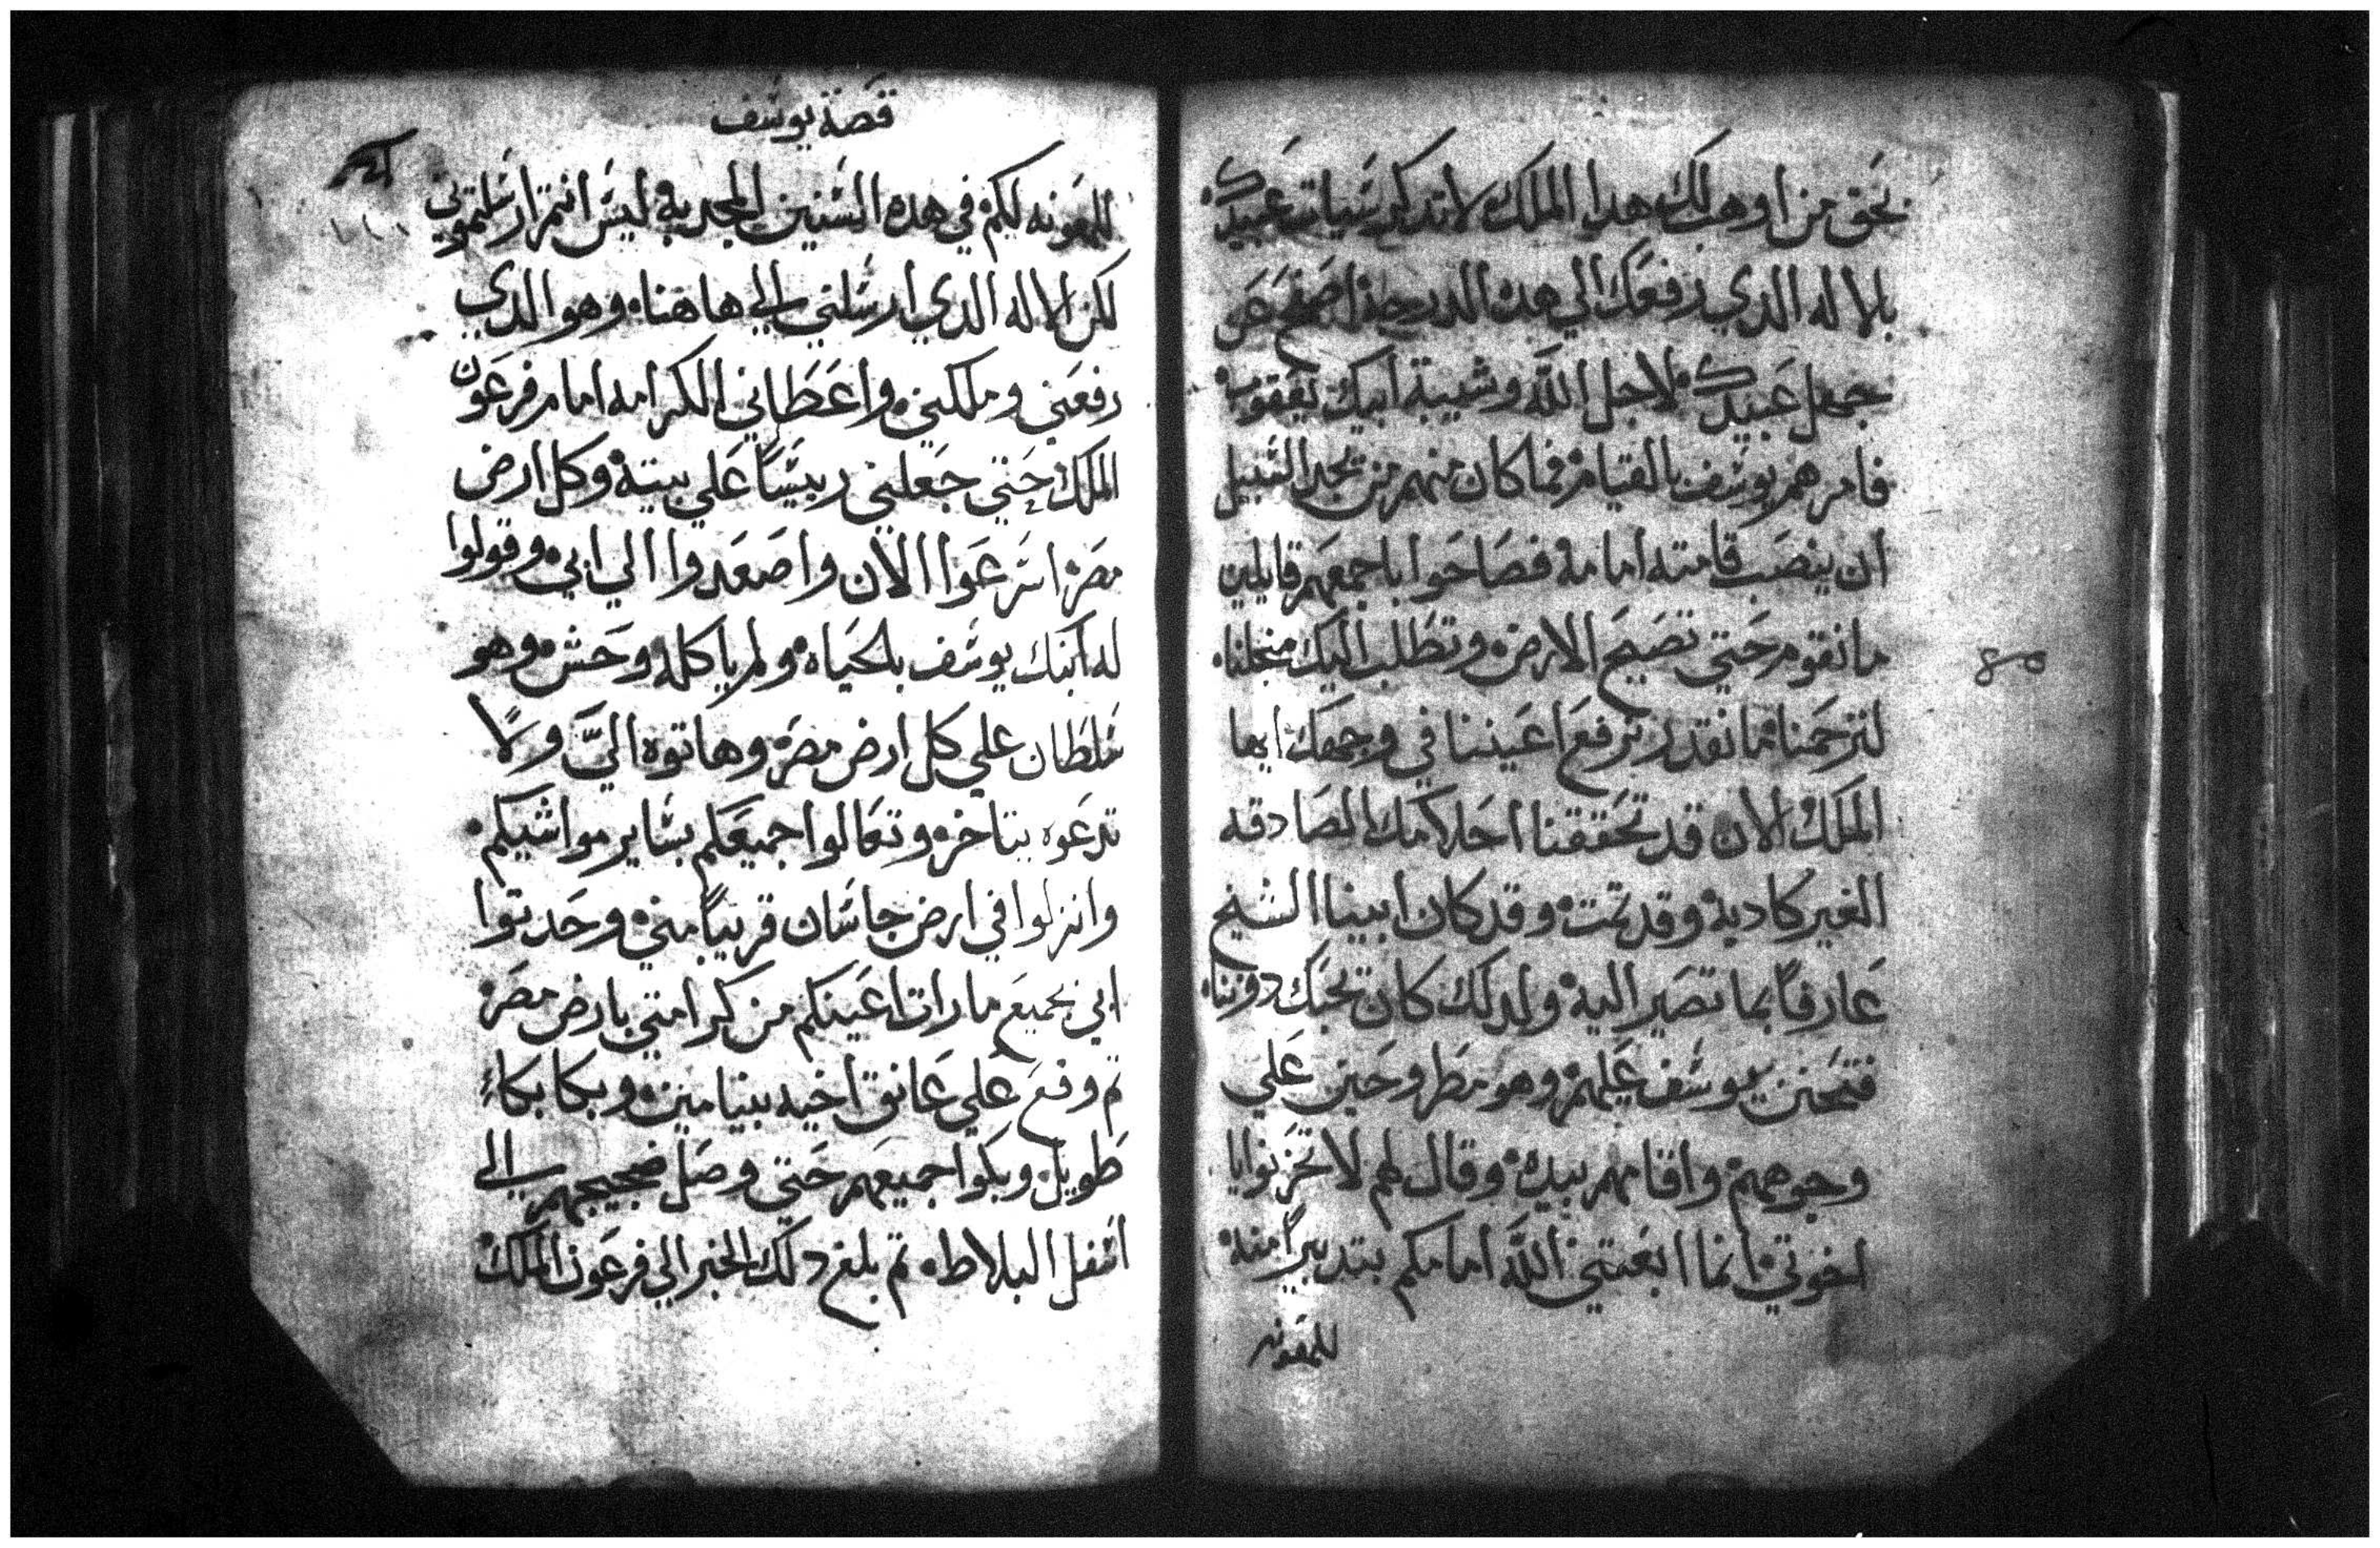 بحق من اوهب لك هدا الملك لا تدكر سيات عبيدك
بلاله الدي رفعك الي هده الدرجة اصفح عن
جهل عبيدك لاجل الله وشيبة ابيك يعقوب
فامرهم يوسف بالقيام فما كان منهم من يجد السبيل
ان ينصب قامته امامه فصاحوا باجمعهم قايلين
ما نقوم حتي تصيح الارض وتطلب اليك من اجلنا
لترحمنا ما نقدر نرفع اعيننا في وجهك ايها
الملك الان قد تحققنا احلامك الصادقه
الغير كادبة وقد تمت وقد كان ابينا الشيخ
عارفاً بما تصير اليه ولدلك كان يحبك دوننا
فتحنن يوسف عليهم وهو مطروحين علي
وجوههم واقامهم بيده وقال لهم لا تحزنوا يا
اخوتي انما ابعتني اللَّه امامكم بتدبيراً منه
للمعونه
قصة يوسف
للمعونه لكم في هده السنين المجدبة ليس انتم ارسلتموني
لكن الاله الدي ارسلني الي هاهنا وهو الدي
رفعني وملكني واعطاني الكرامه امام فرعون
الملك حتي جعلني رييساً علي بيته وكل ارض
مصر اسرعوا الان واصعدوا الي ابي وقولوا
له ابنك يوسف بالحياه ولم ياكله وحش وهو
سلطان علي كل ارض مصر وهاتوه اليَّ ولا
تدعوه يتاخر وتعالوا جميعكم بساير مواشيكم
وانزلوا في ارض جاسان قريباً مني وحدتوا
ابي بجميع ما رات اعينكم من كرامتي بارض مصر
تم وقع علي عانق اخيه بنيامين وبكا بكاءً
طويل وبكوا جميعهم حتي وصل ضجيجهم الي
اسفل البلاط تم بلغ دلك الخبر الي فرعون الملك